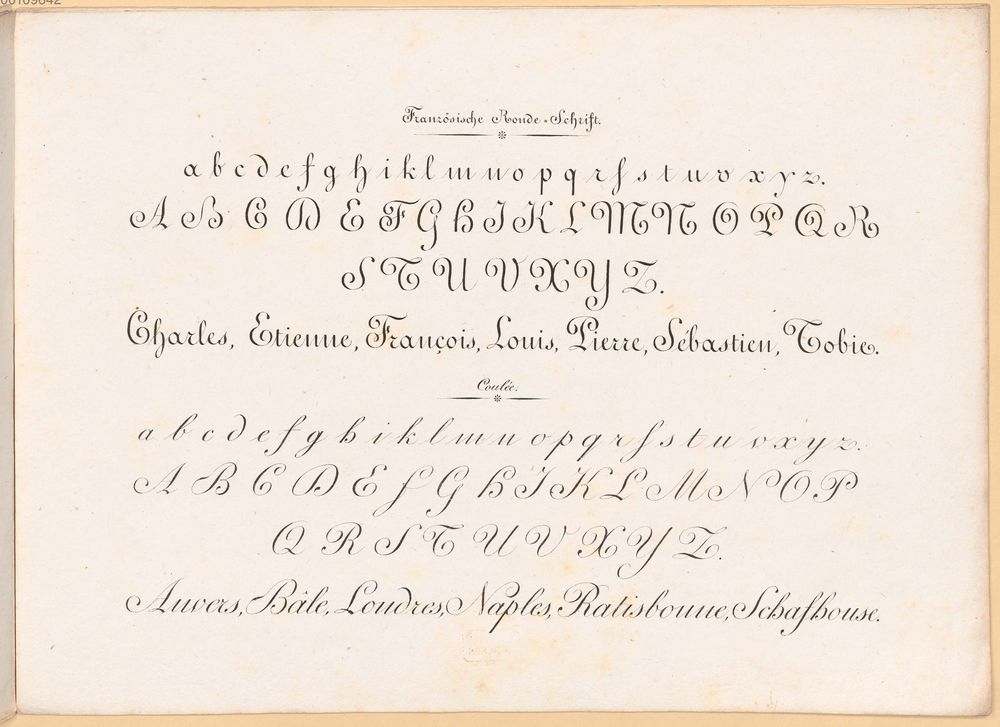 Französische Ronde-Schrift.
a b c d e f g h i k l m n o p q r ſ s t u v x y z.
A B C D E F G H I K L M N O P Q R
S T U V X Y Z.
Charles, Etienne, François, Louis, Pierre, Sébastien, Tobie.
Coulée.
a b c d e f g h i k l m n o p q r ſ s t u v x y z.
A B C D E F G H I K L M N O P
Q R S T U V X Y Z.
Anvers, Bâle, Londres, Naples, Ratisbonne, Schafhouse.